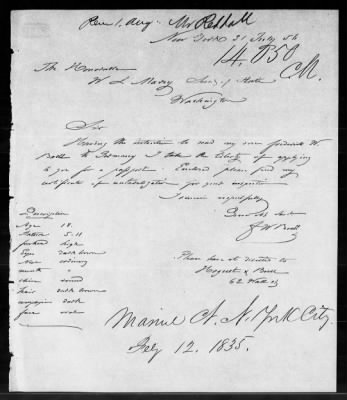 Rec 1. Aug. Mr Reddall
New York 31 July 56
14,050
The Honorable
W L Marcy Secy of State
Washington
Sir
Having the intention to send my son Frederick W.
to Germany I take the liberty of applying
to you for a passport. Enclosed please find my
certificate of naturalization for your inspection
I remain respectfully
Your obt servt
Please have it directed to
Hoguet &
62 Wall St
Description
Age 18.
Stature 5-11
forehead high
Eyes dark brown
Nose ordinary
mouth "
chin round
hair dark brown
complexion dark
face oval
Marine Ct. N. York City.
July 12. 1835.